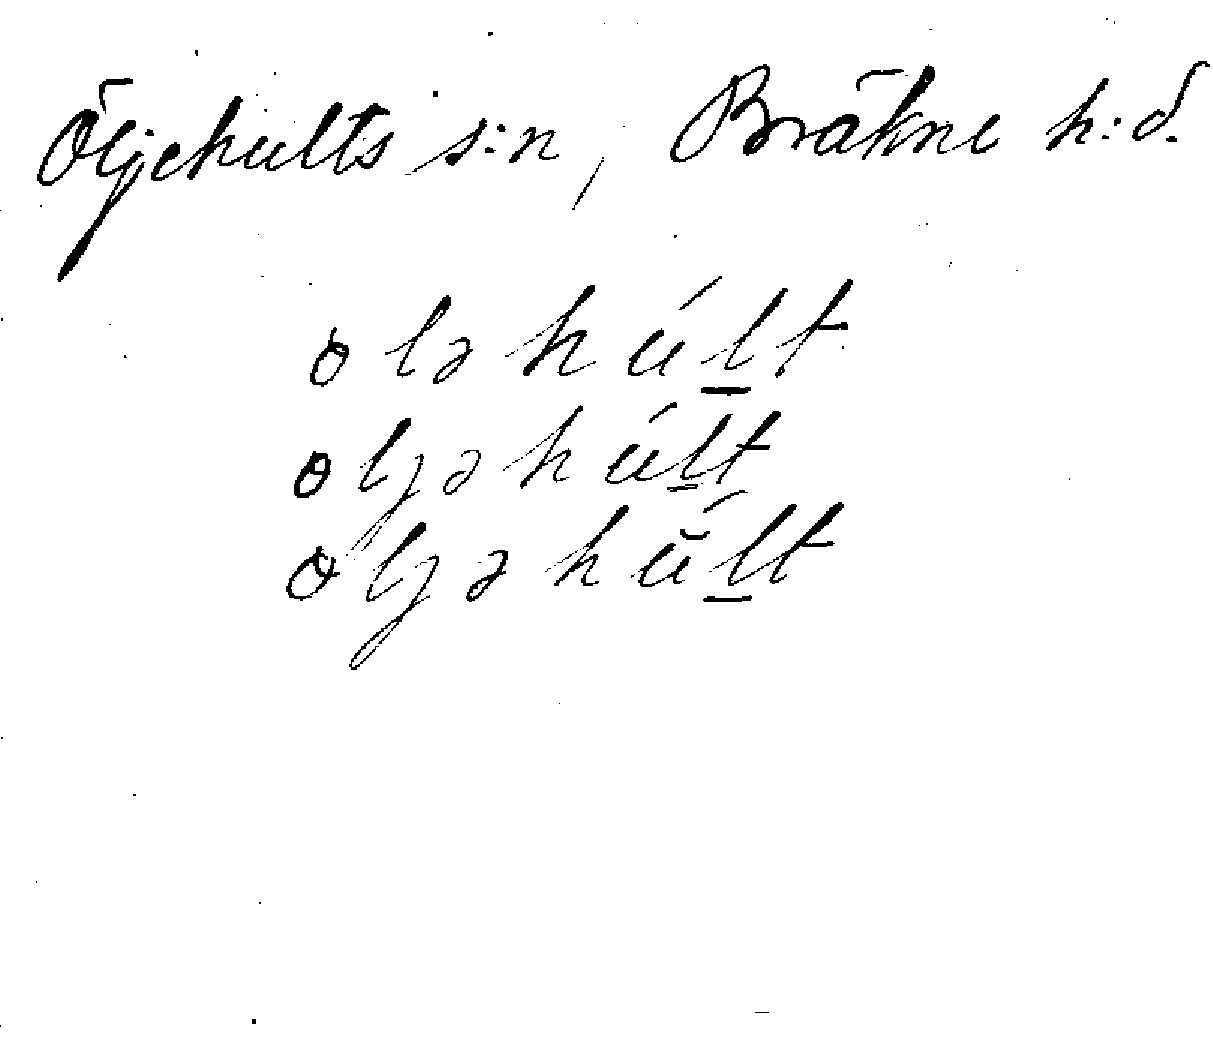 Öljehults s:n, Bräkne h:d.
ɵ l ə h ú l̲ t
ɵ l j ə h ú l̲ t
ɵ l j ə h ŭ́ l̲ t